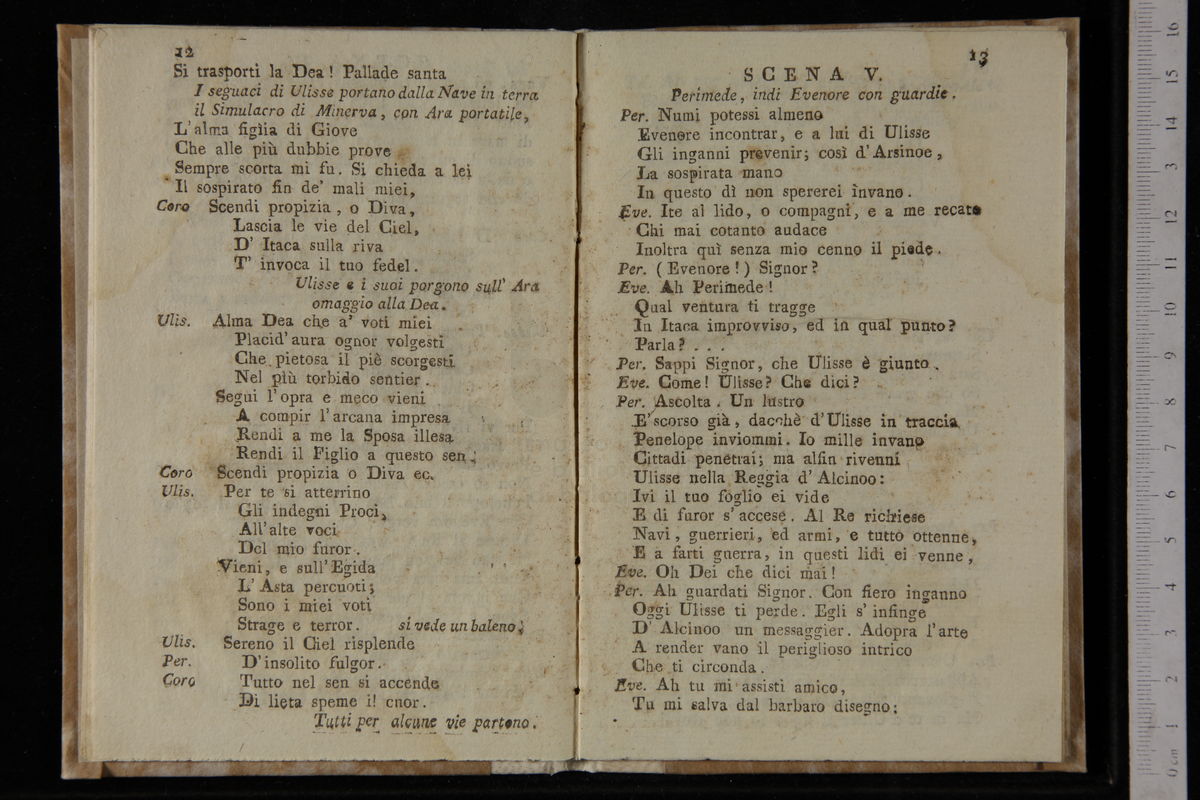 12
Si trasporti la Dea! Pallade santa
I seguaci di Ulisse portano dalla Nave in terra
il Simulacro di Minerva, con Ara portatile,
L'alma figlia di Giove
Che alle più dubbie prove
Sempre scorta mi fu. Si chieda a lei
Il sospirato fin de' mali miei,
Coro Scendi propizia, o Diva,
Lascia le vie del Ciel,
D' Itaca sulla riva
T' invoca il tuo fedel.
Ulisse e i suoi porgono sull' Ara
omaggio alla Dea.
Ulis. Alma Dea che a' voti miei
Placid' aura ognor volgesti
Che pietosa il piè scorgesti
Nel più torbido sentier.
Segui l'opra e meco vieni
A compir l'arcana impresa
Rendi a me la Sposa illesa
Rendi il Figlio a questo sen;
Coro Scendi propizia o Diva ec.
Ulis. Per te si atterrino
Gli indegni Proci,
All'alte voci
Del mio furor.
Vieni, e sull'Egida
L'Asta percuoti;
Sono i miei voti
Strage e terror. si vede un baleno;
Ulis. Sereno il Ciel risplende
Per. D'insolito fulgor.
Coro Tutto nel sen si accende
Di lieta speme il cnor.
Tutti per alcune vie partono.
13
SCENA V.
Perimede, indi Evenore con guardie.
Per. Numi potessi almeno
Evenore incontrar, e a lui di Ulisse
Gli inganni prevenir; così d'Arsinoe,
La sospirata mano
In questo dì non spererei invano.
Eve. Ite al lido, o compagni, e a me recate
Chi mai cotanto audace
Inoltra quì senza mio cenno il piede.
Per. (Evenore!) Signor?
Eve. Ah Perimede!
Qual ventura ti tragge
In Itaca improvviso, ed in qual punto?
Parla? . . .
Per. Sappi Signor, che Ulisse è giunto.
Eve. Come! Ulisse? Che dici?
Per. Ascolta. Un lustro
E' scorso già, dacchè d'Ulisse in traccia
Penelope inviommi. Io mille invano
Cittadi penetrai; ma alfin rivenni
Ulisse nella Reggia d' Alcinoo:
Ivi il tuo foglio ei vide
E di furor s'accese. Al Re richiese
Navi, guerrieri, ed armi, e tutto ottenne,
E a farti guerra, in questi lidi ei venne,
Eve. Oh Dei che dici mai!
Per. Ah guardati Signor. Con fiero inganno
Oggi Ulisse ti perde. Egli s' infinge
D' Alcinoo un messaggier. Adopra l'arte
A render vano il periglioso intrico
Che ti circonda.
Eve. Ah tu mi assisti amico,
Tu mi salva dal barbaro disegno:
0 cm 1 2 3 4 5 6 7 8 9 10 11 12 13 14 15 16